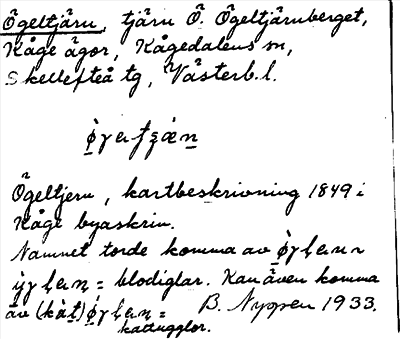 Ögeltjärn, tjärn Ö. Ögeltjärnberget,
Kåge ägor, Kågedalens sn,
Skellefteå tg, Västerb. l.
Ögeltjern, kartbeskrivning 1849 i
Kåge byaskrin.
Namnet torde komma av
= blodiglar. Kan även komma
av (kàt) = B. Nyggen 1933.
kattugglor.